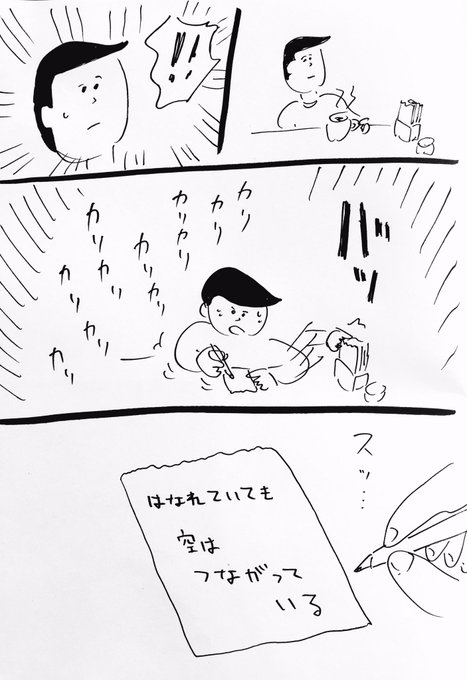 !!
バッ
カリ
カリ
カリカリ
カリ
カリ
カリ
カリ
カリ
カリ
カリ
スッ…
はなれていても
空は
つながって
いる